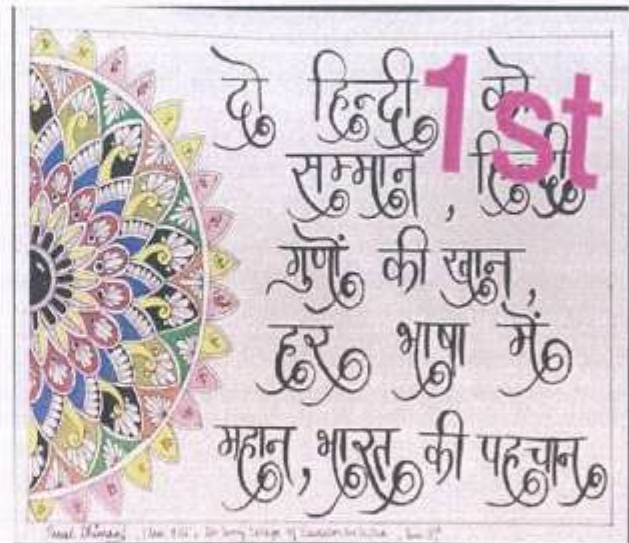 दो हिन्दी को
1st
सम्मान, हिन्दी
गुणों की खान,
हर भाषा में
महान, भारत की पहचान